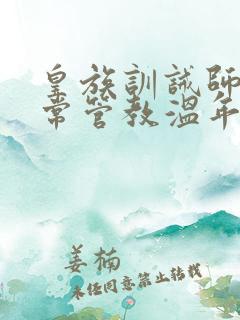 皇族訓誡師
常管教溫年
姜楠
未任同意禁止轉載